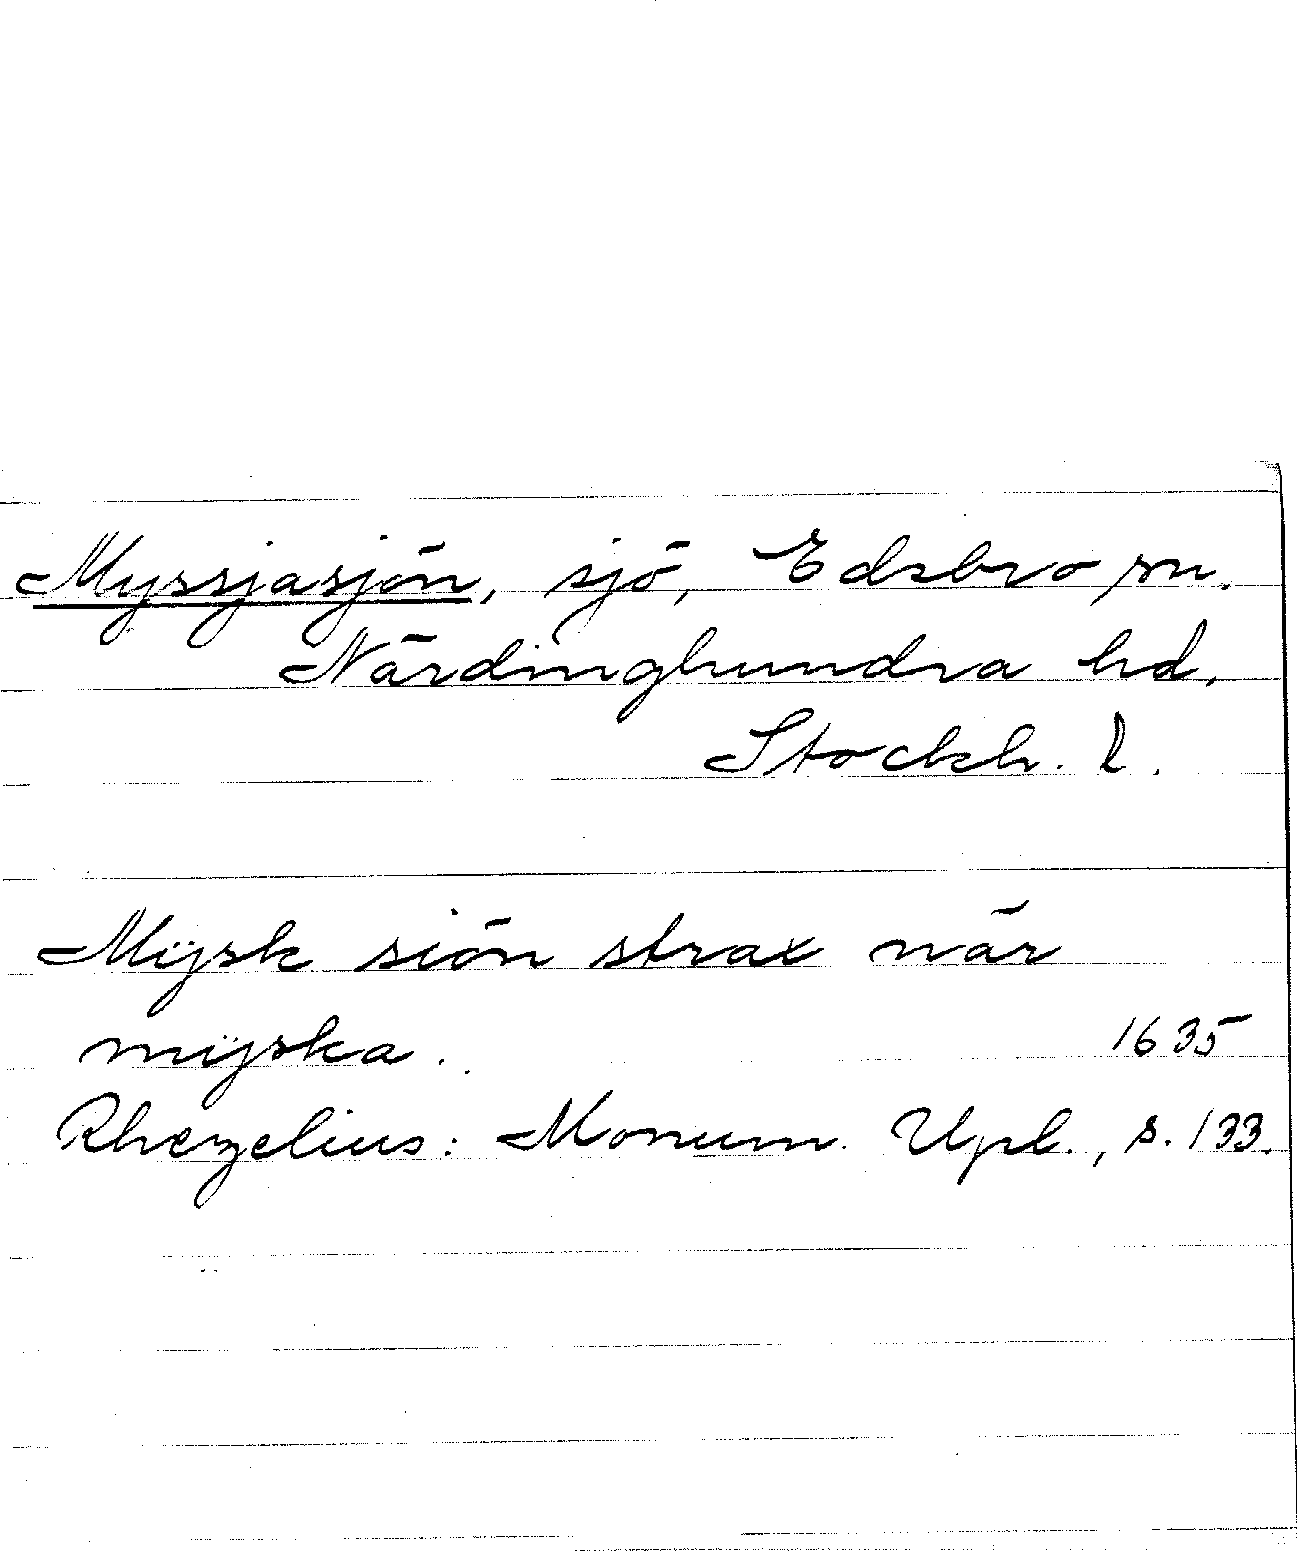 Myssjasjön, sjö, Edsbro sn.
Närdinghundra hd.
Stockh. l.
Mÿsk siön strax när
mÿska. 1635
Rhezelius: Monum. Upl., s. 133.